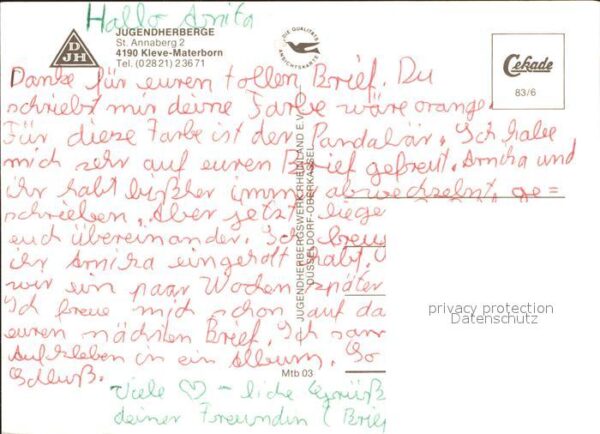 Hallo Annika
DJH
JUGENDHERBERGE
St. Annaberg 2
4190 Kleve-Materborn
Tel. (02821) 23671
DIE QUALITÄTS ANSICHTSKARTE
Cekade
83/6
Danke für euren tollen Brief. Du
schriebst mir deine Farbe wäre orange.
Für diese Farbe ist der Pandabär. Ich habe
mich sehr auf euren Brief gefreut. Annika und
ihr habt bißher immer abwechselnt ge=
schrieben. Aber jetzt liege
euch übereinander. Ich
ihr Annika eingeholt habt.
wir ein paar Wochen später
Ich freue mich schon auf da
euren nächsten Brief. Ich sam
Aufkleben in ein Album. So
Schluß.
Viele ♡ - liche Grüß
deiner Freundin (Brief
JUGENDHERBERGSWERK RHEINLAND E.V.
DÜSSELDORF-OBERKASSEL
Mtb 03
privacy protection
Datenschutz